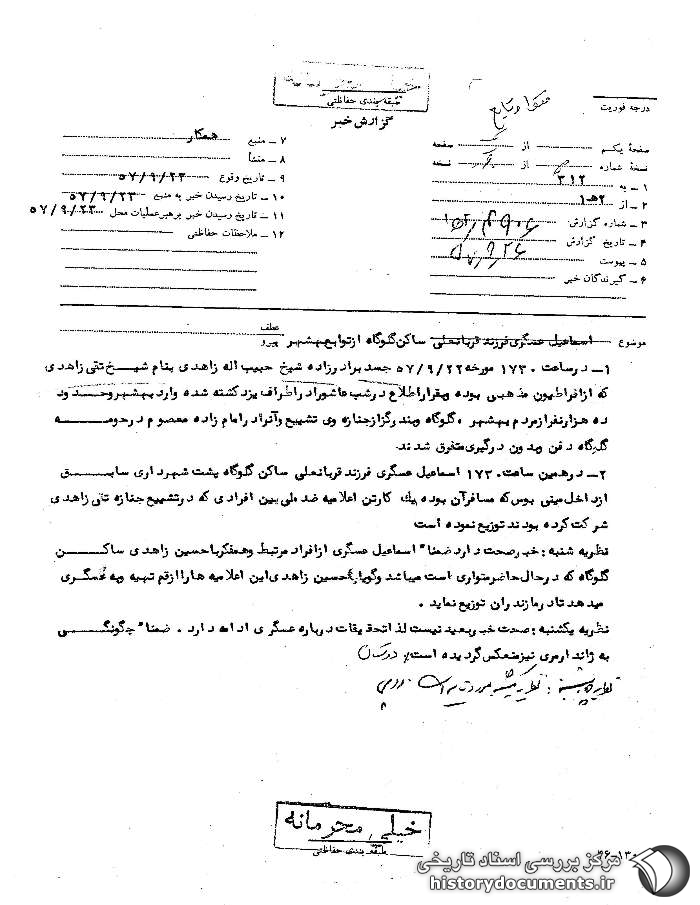 طبقه بندی حفاظتی
گزارش خبر
درجه فوریت
صفحهٔ یکم از صفحه
نسخهٔ شماره از نسخه
۱ــ به ۳۱۲
۲ــ از ۲هـ۱
۳ــ شماره گزارش
۴ــ تاریخ گزارش
۵ــ پیوست
۶ــ گیرندگان خبر
۷ــ منبع همکار
۸ــ منشأ
۹ــ تاریخ وقوع ۵۷/۹/۲۳
۱۰ــ تاریخ رسیدن خبر به منبع ۵۷/۹/۲۳
۱۱ــ تاریخ رسیدن خبر برهبرعملیات محل ۵۷/۹/۲۳
۱۲ــ ملاحظات حفاظتی
موضوع اسماعیل عسگری فرزند قربانعلی ساکن گلوگاه ازتوابع بهشهر
عطف
پیرو
۱ــ درساعت ۱۷۳۰ مورخه ۵۷/۹/۲۲ جسد برادرزاده شیخ حبیب اله زاهدی بنام شیخ تقی زاهدی
که ازافراطیون مذهبی بوده وبقراراطلاع درشب عاشورا دراطراف یزد کشته شده وارد بهشهر وحدود
ده هزارنفرازمردم بهشهر ، گلوگاه وبندرگزازجنازه وی تشییع وآنرادر امام زاده معصوم درحومه
گلوگاه دفن وبدون درگیری متفرق شدند.
۲ــ درهمین ساعت ۱۷۳۰ اسماعیل عسگری فرزند قربانعلی ساکن گلوگاه پشت شهرداری سابق
ازداخل مینی بوس که مسافرآن بوده یک کارتن اعلامیه ضد ملی بین افرادی که درتشییع جنازه تقی زاهدی
شرکت کرده بودند توزیع نموده است
نظریه شنبه : خبرصحت دارد ضمنا" اسماعیل عسگری ازافراد مرتبط وهمفکربا حسین زاهدی ساکن
گلوگاه که درحال حاضرمتواری است میباشد وگویا حسین زاهدی این اعلامیه هاراازقم تهیه وبه عسگری
میدهد تادرمازندران توزیع نماید .
نظریه یکشنبه : صحت خبربعید نیست لذاتحقیقات درباره عسگری ادامه دارد . ضمنا" چگونگی
به ژاندارمری نیزمنعکس گردیده است.
خیلی محرمانه
طبقه بندی حفاظتی
مرکز بررسی اسناد تاریخی
historydocuments.ir